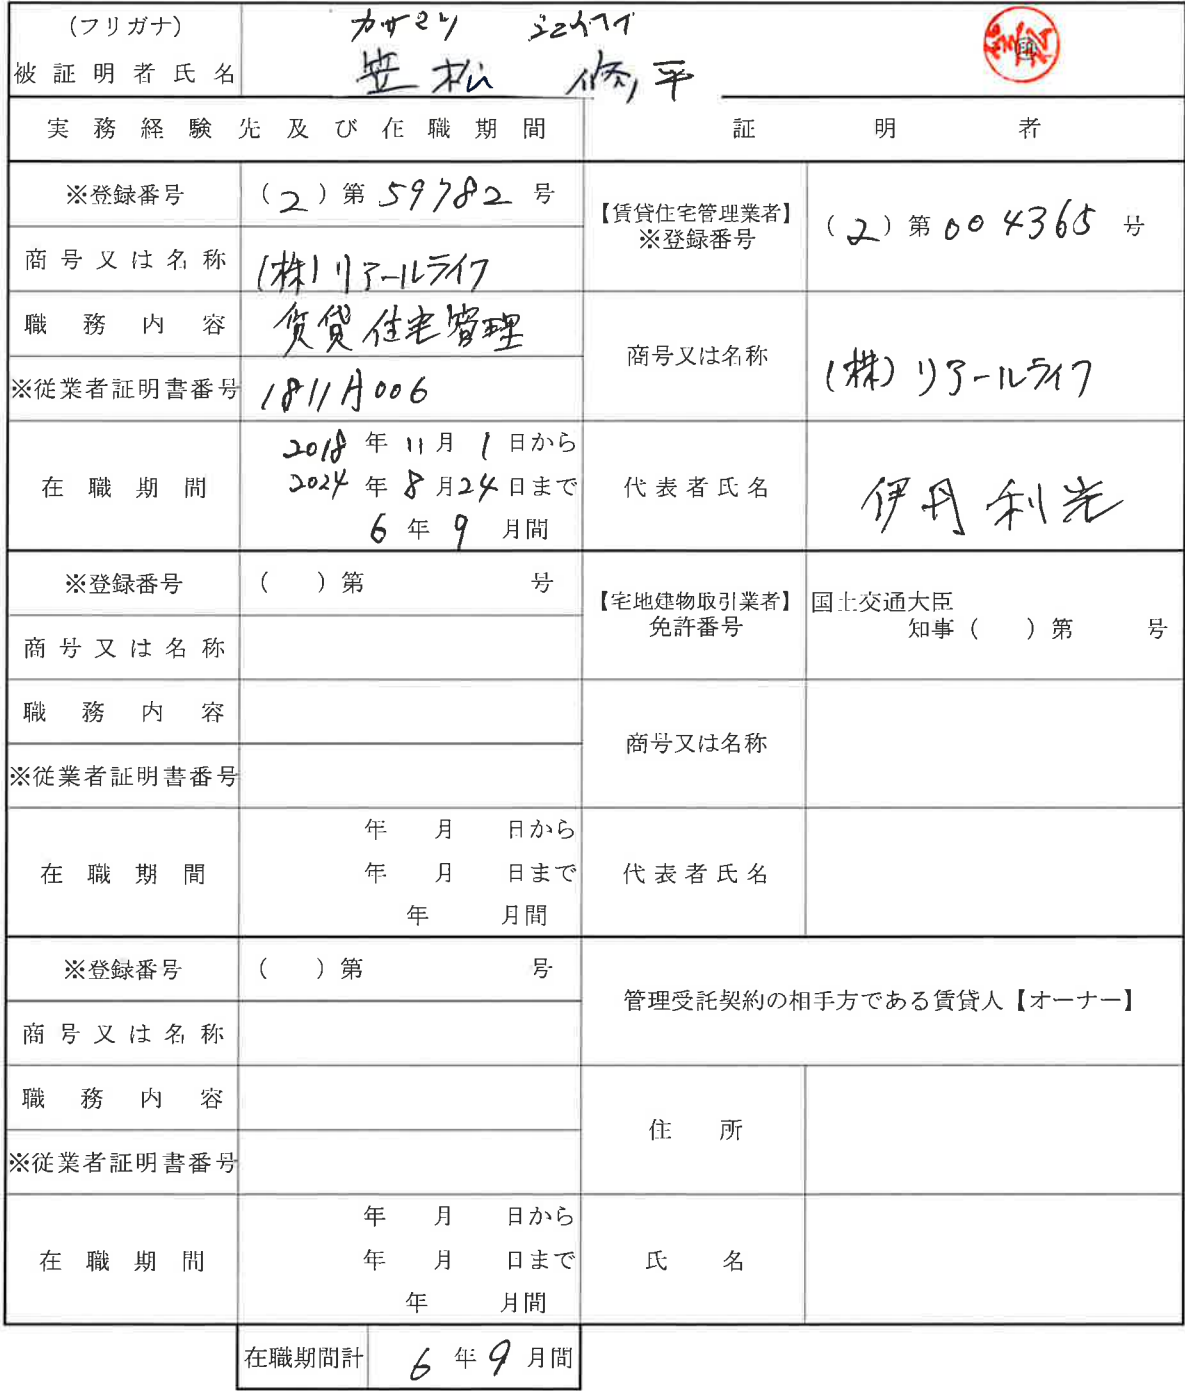 (フリガナ) カサマツ
被証明者氏名 笠松 修平 印
実務経験先及び在職期間 証明者
※登録番号 (2)第59782号
【賃貸住宅管理業者】
※登録番号 (2)第004365号
商号又は名称 (株)リアールライフ
職務内容 賃貸住宅管理
商号又は名称 (株)リアールライフ
※従業者証明書番号 1811A006
在職期間 2018年11月1日から
2024年8月24日まで
6年9月間
代表者氏名 伊丹利光
※登録番号 ( )第 号
【宅地建物取引業者】
免許番号
国土交通大臣
知事( )第 号
商号又は名称
職務内容
商号又は名称
※従業者証明書番号
在職期間 年 月 日から
年 月 日まで
年 月間
代表者氏名
※登録番号 ( )第 号
管理受託契約の相手方である賃貸人【オーナー】
商号又は名称
職務内容
住所
※従業者証明書番号
在職期間 年 月 日から
年 月 日まで
年 月間
氏名
在職期間計 6年9月間